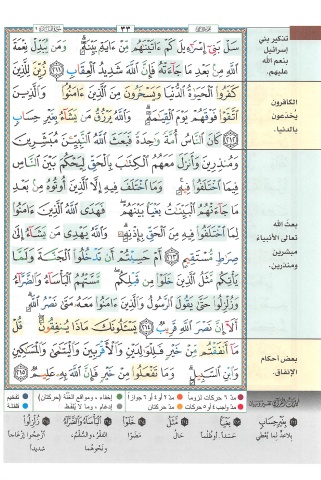 ٣٣
سَلْ بَنِىٓ إِسْرَٰٓءِيلَ كَمْ ءَاتَيْنَٰهُم مِّنْ ءَايَةٍۭ بَيِّنَةٍ ۗ وَمَن يُبَدِّلْ نِعْمَةَ
ٱللَّهِ مِنۢ بَعْدِ مَا جَآءَتْهُ فَإِنَّ ٱللَّهَ شَدِيدُ ٱلْعِقَابِ ٢١١ زُيِّنَ لِلَّذِينَ
كَفَرُوا۟ ٱلْحَيَوٰةُ ٱلدُّنْيَا وَيَسْخَرُونَ مِنَ ٱلَّذِينَ ءَامَنُوا۟ ۘ وَٱلَّذِينَ
ٱتَّقَوْا۟ فَوْقَهُمْ يَوْمَ ٱلْقِيَٰمَةِ ۗ وَٱللَّهُ يَرْزُقُ مَن يَشَآءُ بِغَيْرِ حِسَابٍ
٢١٢ كَانَ ٱلنَّاسُ أُمَّةً وَٰحِدَةً فَبَعَثَ ٱللَّهُ ٱلنَّبِيِّۦنَ مُبَشِّرِينَ
وَمُنذِرِينَ وَأَنزَلَ مَعَهُمُ ٱلْكِتَٰبَ بِٱلْحَقِّ لِيَحْكُمَ بَيْنَ ٱلنَّاسِ
فِيمَا ٱخْتَلَفُوا۟ فِيهِ ۚ وَمَا ٱخْتَلَفَ فِيهِ إِلَّا ٱلَّذِينَ أُوتُوهُ مِنۢ بَعْدِ
مَا جَآءَتْهُمُ ٱلْبَيِّنَٰتُ بَغْيًۢا بَيْنَهُمْ ۖ فَهَدَى ٱللَّهُ ٱلَّذِينَ ءَامَنُوا۟
لِمَا ٱخْتَلَفُوا۟ فِيهِ مِنَ ٱلْحَقِّ بِإِذْنِهِۦ ۗ وَٱللَّهُ يَهْدِى مَن يَشَآءُ إِلَىٰ
صِرَٰطٍ مُّسْتَقِيمٍ ٢١٣ أَمْ حَسِبْتُمْ أَن تَدْخُلُوا۟ ٱلْجَنَّةَ وَلَمَّا
يَأْتِكُم مَّثَلُ ٱلَّذِينَ خَلَوْا۟ مِن قَبْلِكُم ۖ مَّسَّتْهُمُ ٱلْبَأْسَآءُ وَٱلضَّرَّآءُ
وَزُلْزِلُوا۟ حَتَّىٰ يَقُولَ ٱلرَّسُولُ وَٱلَّذِينَ ءَامَنُوا۟ مَعَهُۥ مَتَىٰ نَصْرُ ٱللَّهِ ۗ
أَلَآ إِنَّ نَصْرَ ٱللَّهِ قَرِيبٌ ٢١٤ يَسْـَٔلُونَكَ مَاذَا يُنفِقُونَ ۖ قُلْ
مَآ أَنفَقْتُم مِّنْ خَيْرٍ فَلِلْوَٰلِدَيْنِ وَٱلْأَقْرَبِينَ وَٱلْيَتَٰمَىٰ وَٱلْمَسَٰكِينِ
وَٱبْنِ ٱلسَّبِيلِ ۗ وَمَا تَفْعَلُوا۟ مِنْ خَيْرٍ فَإِنَّ ٱللَّهَ بِهِۦ عَلِيمٌ ٢١٥
تذكير بني
إسرائيل
بنعم الله
عليهم.
الكافرون
يُخدعون
بالدنيا.
بعث الله
تعالى الأنبياء
مبشرين
ومنذرين.
بعض أحكام
الإنفاق.
مدّ ٦ حركات لزوماً مدّ ٢ أو ٤ أو ٦ جوازاً إخفاء، ومواقع الغنّة (حركتان) تفخيم
مدّ واجب ٤ أو ٥ حركات مدّ حركتان إدغام، وما لا يُلفظ قلقلة
بِغَيْرِ حِسَابٍ بَغْيًا مَثَلُ خَلَوْا الْبَأْسَاءُ وَالضَّرَّاءُ زُلْزِلُوا
بلا عدّ لما يُعطي حسداً، أو ظلماً حال مَضَوْا الفقر، والسّقم، أُزعجوا إزعاجاً
ونحوهما شديداً